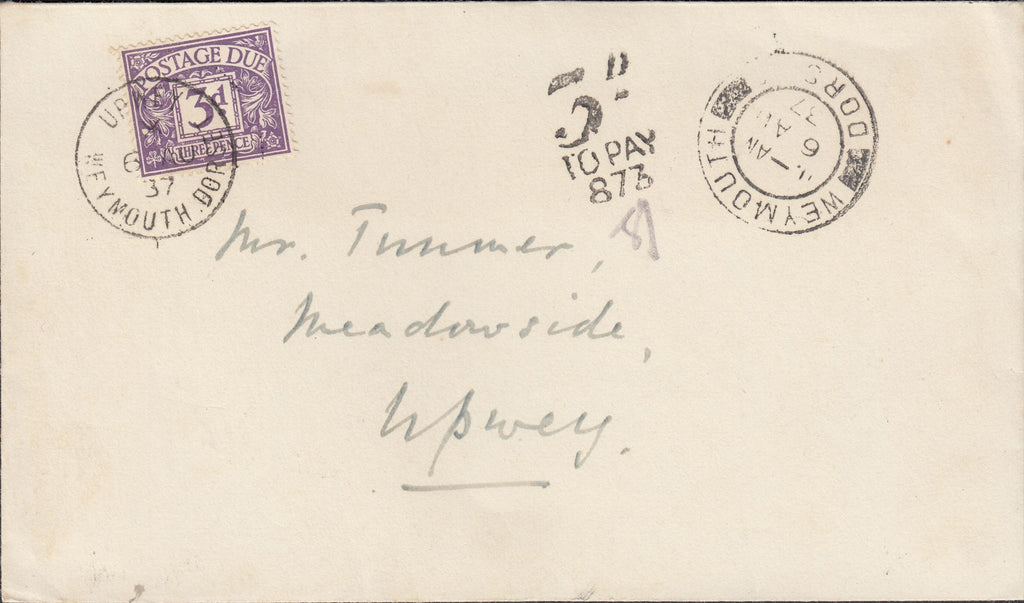 POSTAGE DUE
3d
THREEPENCE
UPWEY
6 AU
37
WEYMOUTH.DORSET
3D
TO PAY
873
WEYMOUTH DORSET
6 AU
37
Mr. Tummer,
Meadowside,
Upwey.